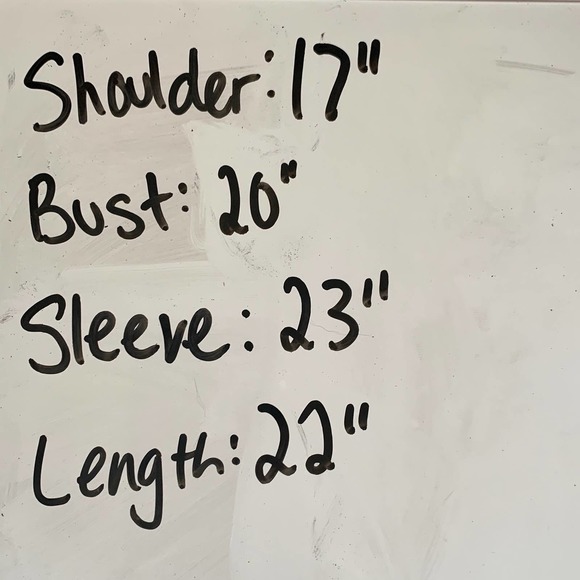 Shoulder: 17"
Bust: 20"
Sleeve: 23"
Length: 22"